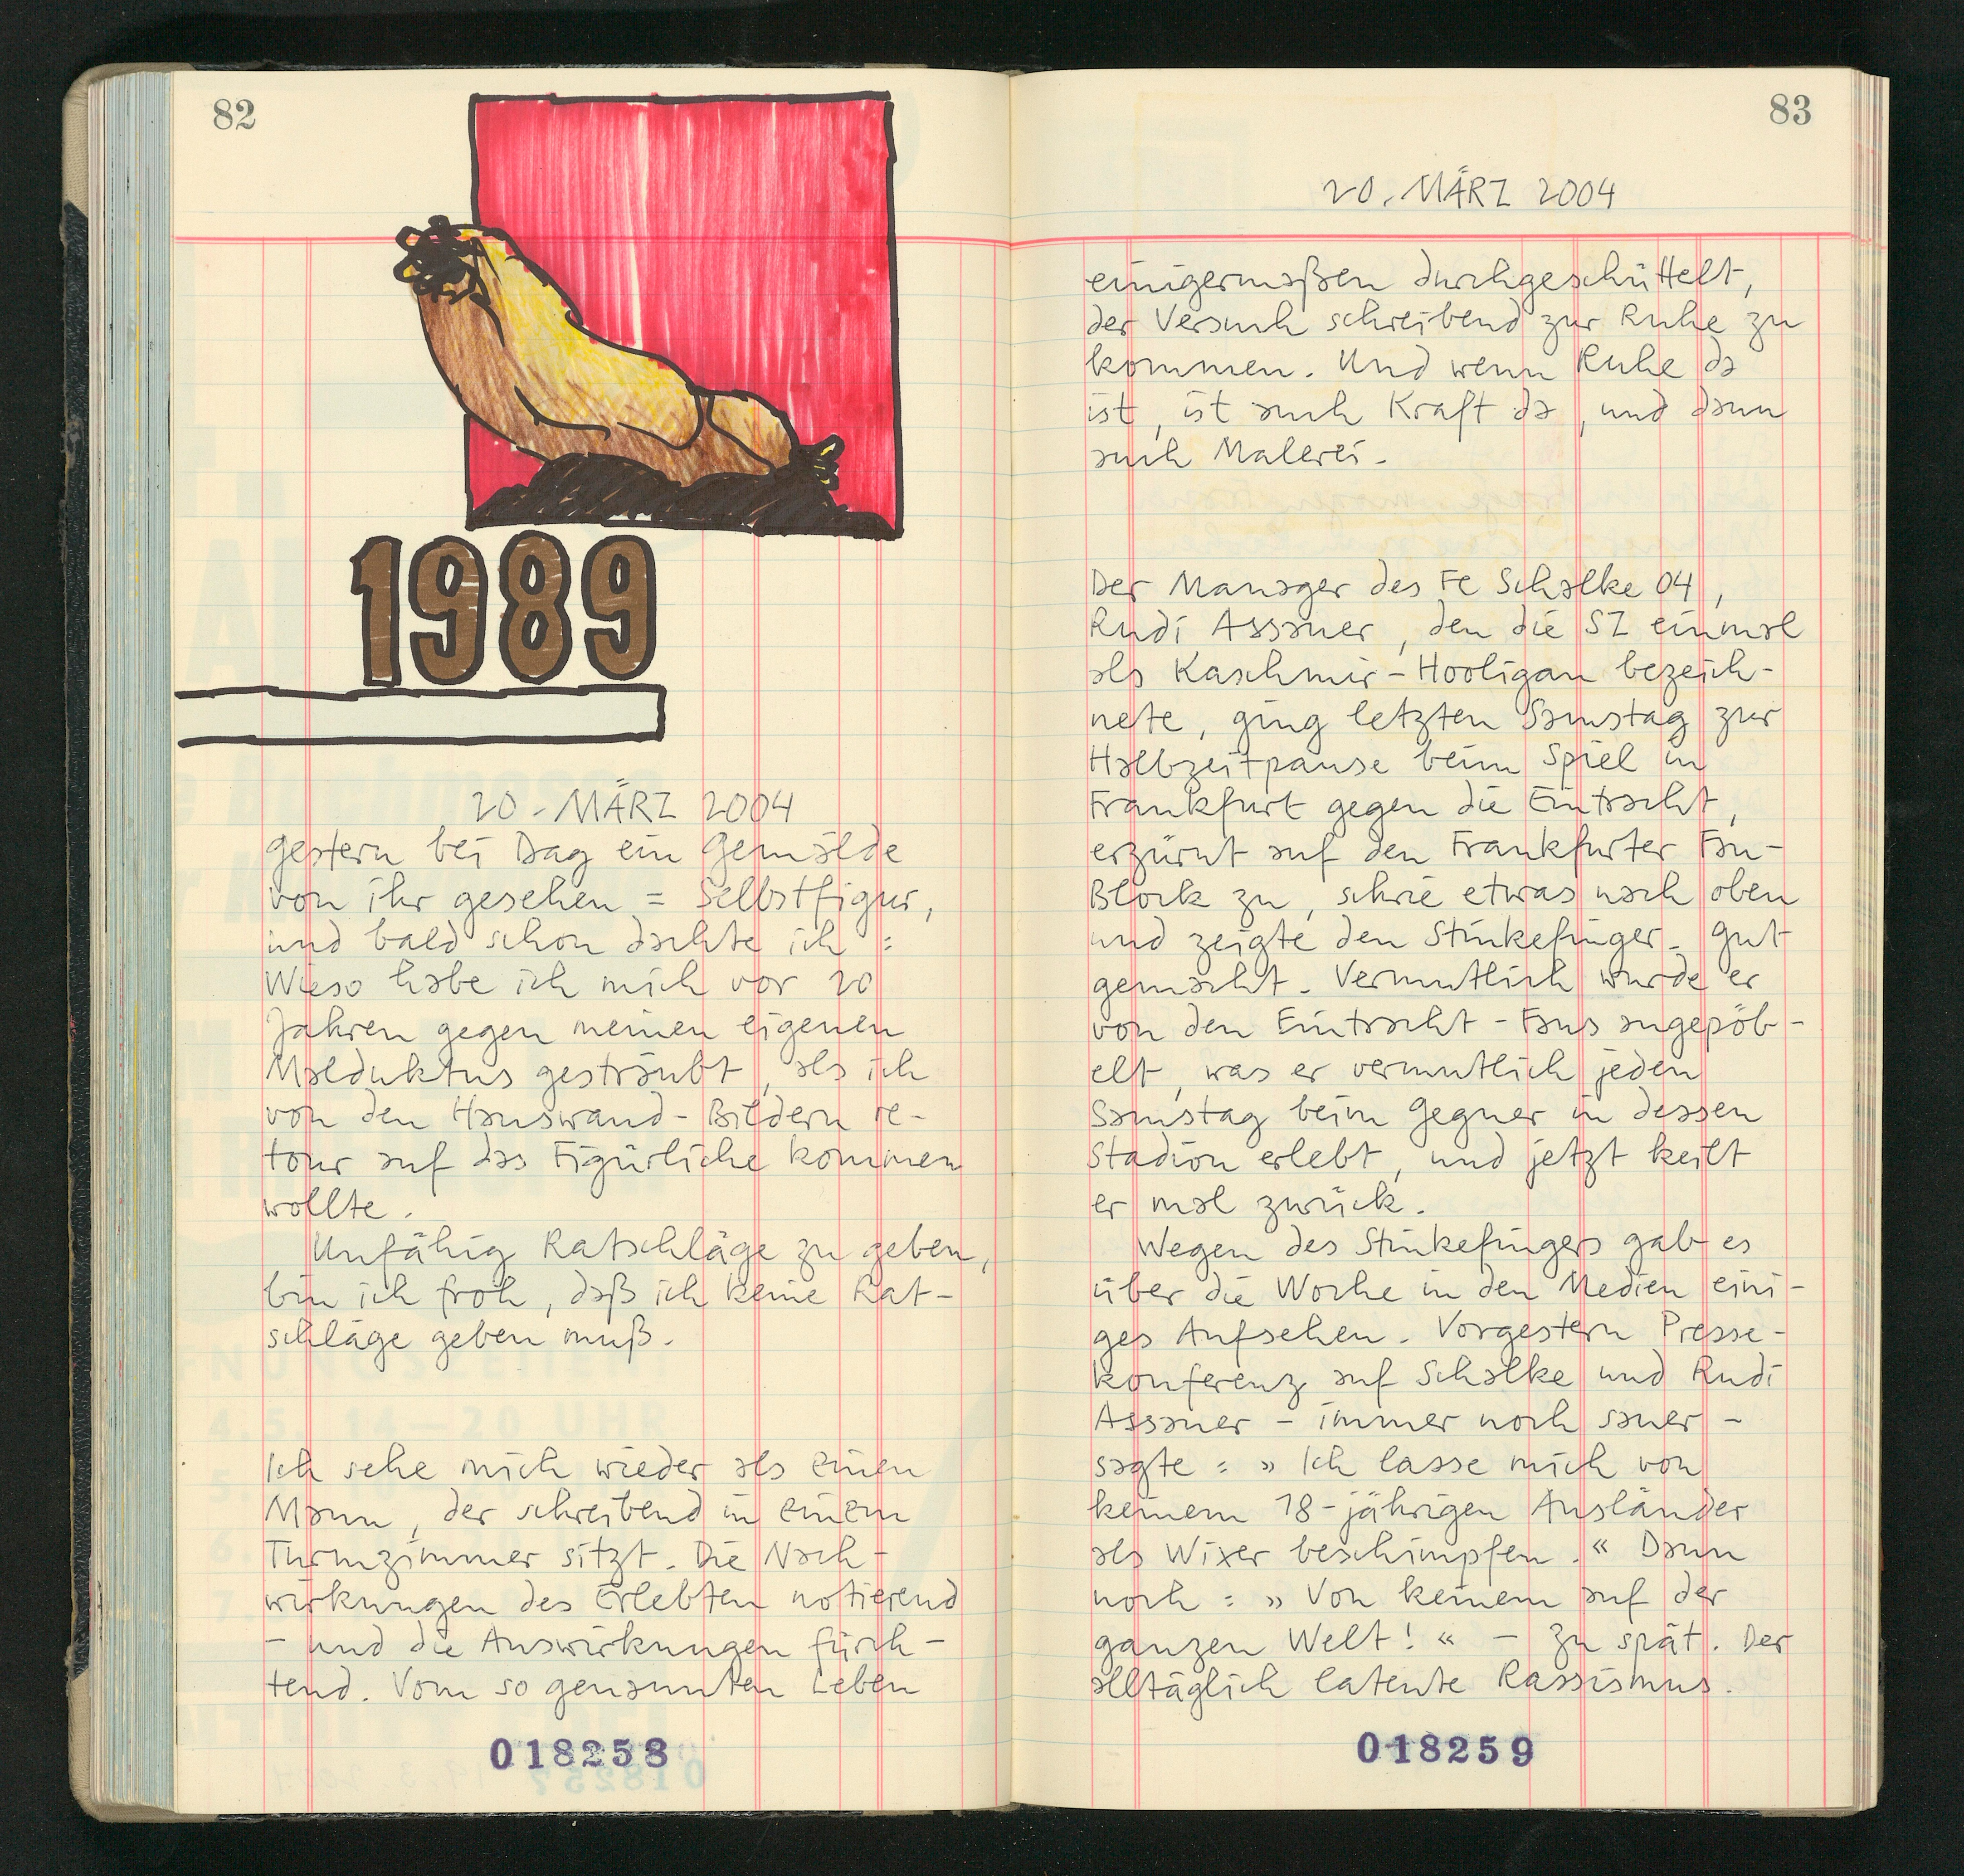 82
1989
20. MÄRZ 2004
gestern bei Dag ein Gemälde
von ihr gesehen = Selbstfigur,
und bald schon dachte ich :
Wieso habe ich mich vor 20
Jahren gegen meinen eigenen
Malduktus gesträubt, als ich
von den Hauswand-Bildern re-
tour auf das Figürliche kommen
wollte.
Unfähig Ratschläge zu geben,
bin ich froh, daß ich keine Rat-
schläge geben muß.
Ich sehe mich wieder als einen
Mann, der schreibend in einem
Turmzimmer sitzt. Die Nach-
wirkungen des Erlebten notierend
– und die Auswirkungen fürch-
tend. Vom so genannten Leben
018258
83
20. MÄRZ 2004
einigermaßen durchgeschüttelt,
der Versuch schreibend zur Ruhe zu
kommen. Und wenn Ruhe da
ist, ist auch Kraft da, und dann
auch Malerei.
Der Manager des FC Schalke 04,
Rudi Assauer, den die SZ einmal
als Kaschmir-Hooligan bezeich-
nete, ging letzten Samstag zur
Halbzeitpause beim Spiel in
Frankfurt gegen die Eintracht,
erzürnt auf den Frankfurter Fan-
Block zu, schrie etwas nach oben
und zeigte den Stinkefinger. Gut
gemacht. Vermutlich wurde er
von den Eintracht-Fans angepöb-
elt, was er vermutlich jeden
Samstag beim Gegner in dessen
Stadion erlebt, und jetzt keilt
er mal zurück.
Wegen des Stinkefingers gab es
über die Woche in den Medien eini-
ges Aufsehen. Vorgestern Presse-
konferenz auf Schalke und Rudi
Assauer – immer noch sauer –
sagte : » Ich lasse mich von
keinem 18-jährigen Ausländer
als Wixer beschimpfen.« Dann
noch : » Von keinem auf der
ganzen Welt! « – Zu spät. Der
alltäglich latente Rassismus.
018259